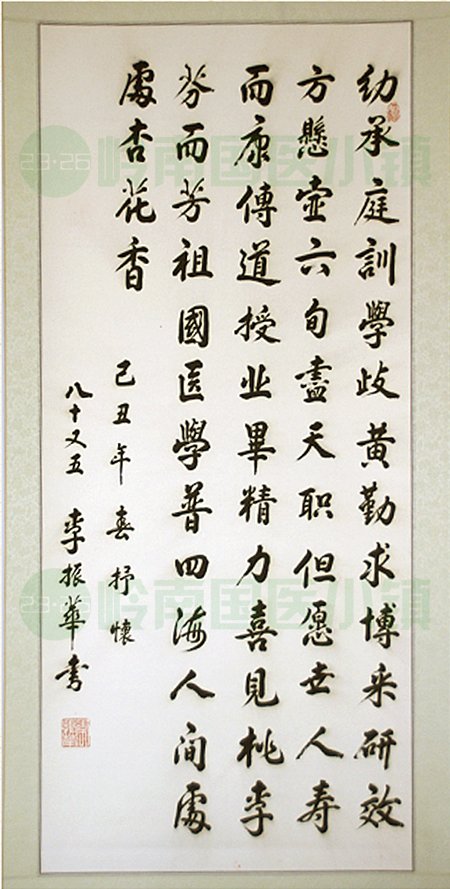 幼承庭訓學歧黄勤求博采研效
方懸壺六旬盡天职但愿世人寿
而康傳道授业畢精力喜見桃李
芬而芳祖國医學普四海人间處
處杏花香
己丑年春抒懷
八十又五 李振華书
23·26 岭南国医小镇
23·26 岭南国医小镇